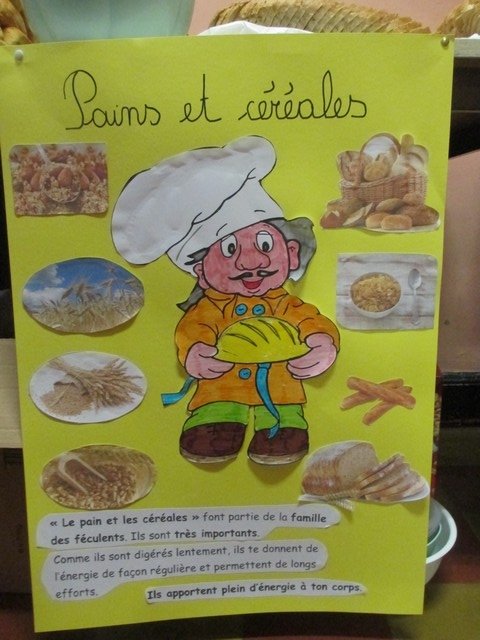 Pains et céréales
« Le pain et les céréales » font partie de la famille
des féculents. Ils sont très importants.
Comme ils sont digérés lentement, ils te donnent de
l'énergie de façon régulière et permettent de longs
efforts.
Ils apportent plein d'énergie à ton corps.